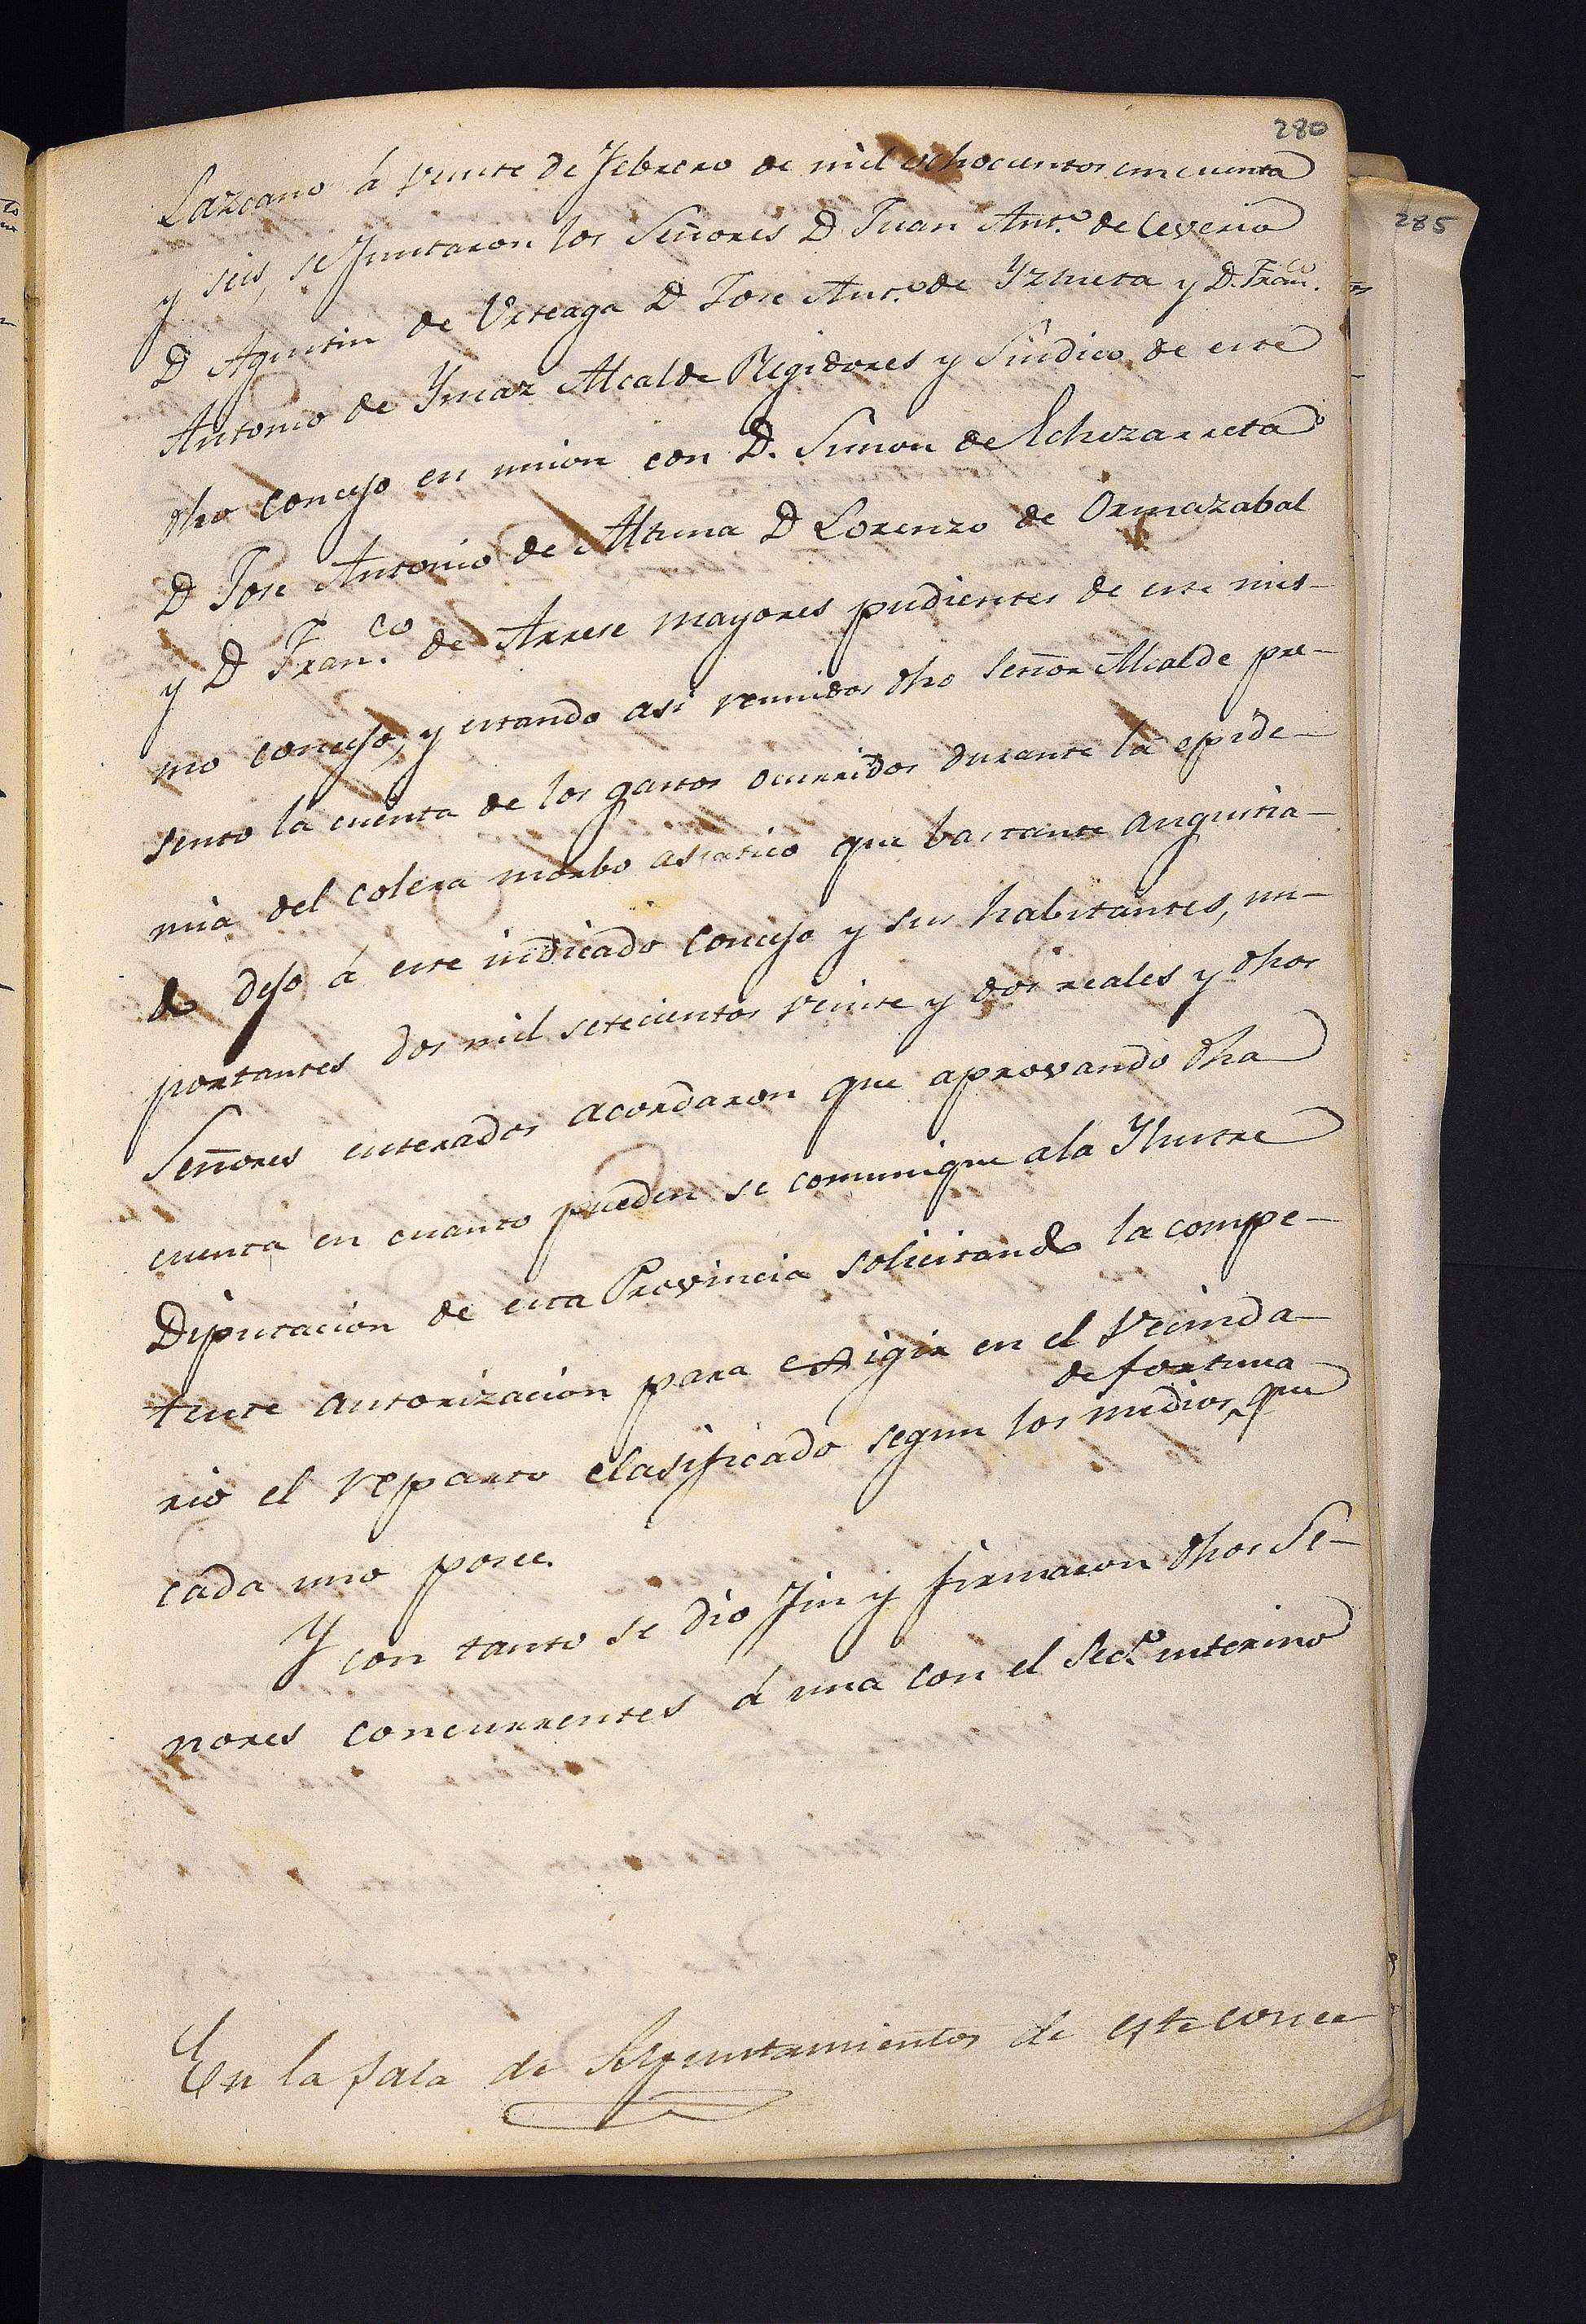 280
Lazcano á veinte de Febrero de mil ochocientos cincuenta
y seis, se Juntaron los Señores D Juan Ant.º de Ceverio
D Agustin de Urteaga D Jose Ant.º de Yztueta y D. Fran.co
Antonio de Ymaz Alcalde Regidores y Sindico de este
dho concejo en union con D. Simon de Echezarreta
D Jose Antonio de Altuna D Lorenzo de Ormazabal
y D Fran.co de Arrese mayores pudientes de este mis-
mo concejo, y estando asi reunidos dho Señor Alcalde pre-
sento la cuenta de los gastos ocurridos durante la epide-
mia del colera morbo asiatico que bastante angustia-
do dejo á este indicado concejo y sus habitantes, im-
portantes dos mil setecientos veinte y dos reales y dhos
Señores enterados acordaron que aprovando dha
cuenta en cuanto pueden se comunique a la Ylustre
Diputacion de esta Provincia solicitando la compe-
tente autorizacion para exigir en el vecinda-
de fortuna
rio el reparto clasificado segun los medios que
cada uno posee.
Y con tanto se dio Fin y firmaron dhos Se-
nores concurrentes á una con el Sec.º interino
En la sala de Ayuntamientos de este conce
285